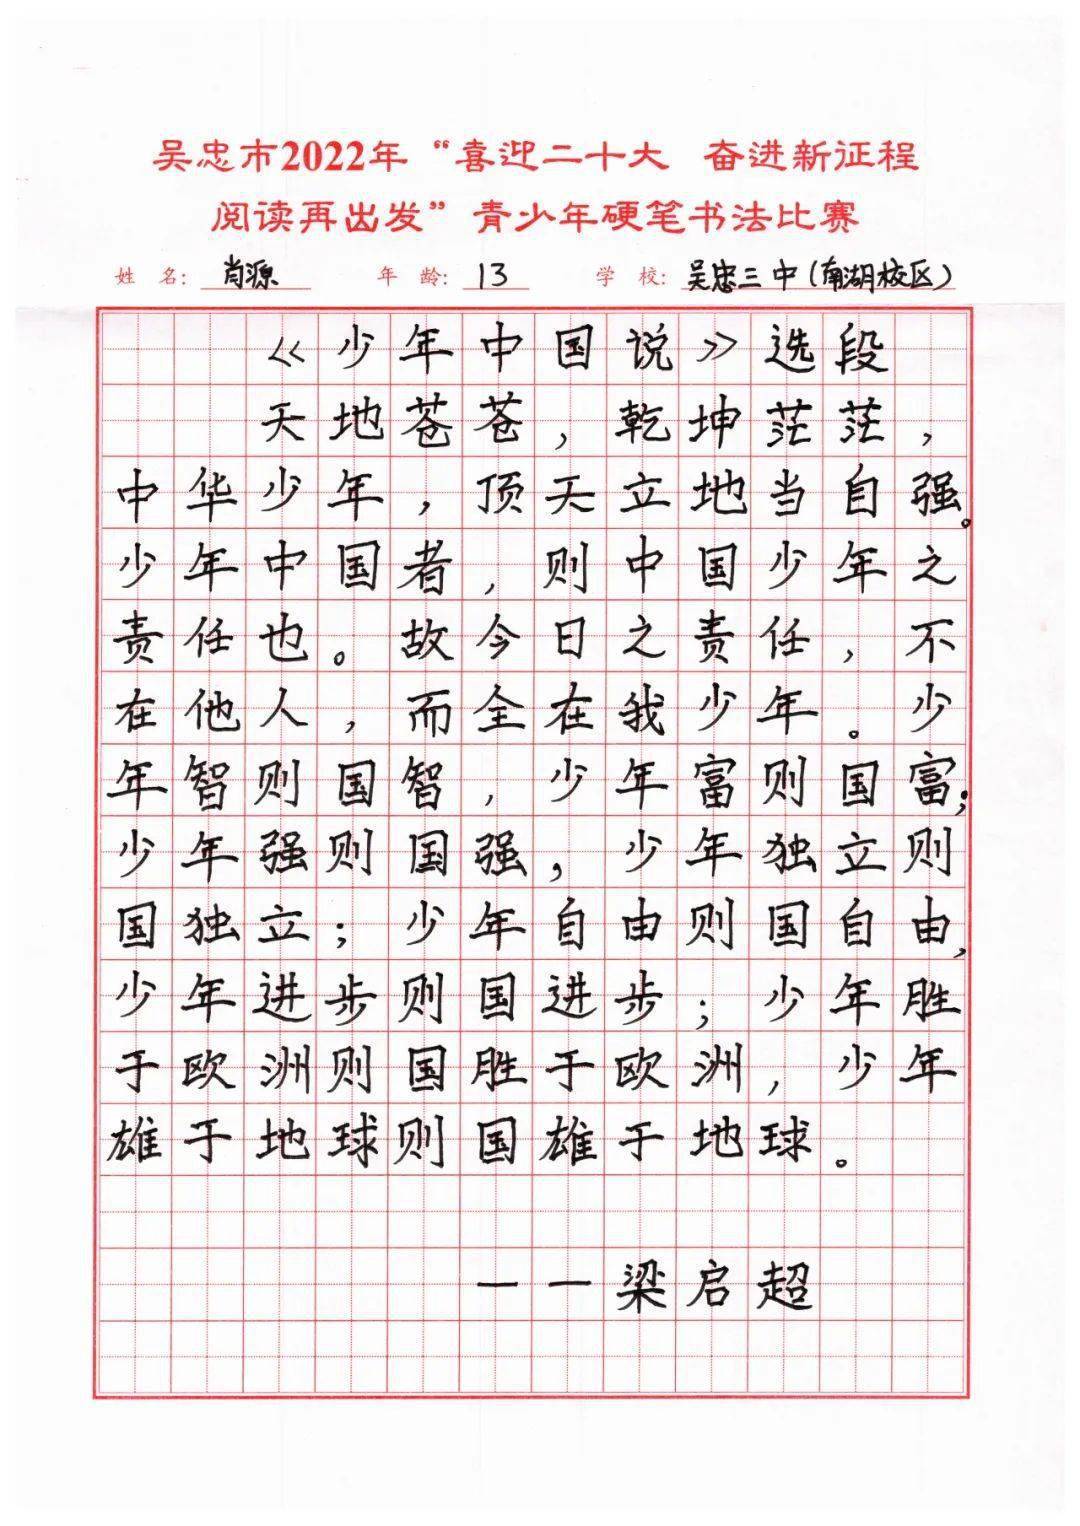 吴忠市2022年“喜迎二十大 奋进新征程
阅读再出发”青少年硬笔书法比赛
姓 名: 肖源 年 龄: 13 学 校: 吴忠三中(南湖校区)
《少年中国说》选段
天地苍苍,乾坤茫茫,
中华少年,顶天立地当自强。
少年中国者,则中国少年之
责任也。故今日之责任,不
在他人,而全在我少年。少
年智则国智,少年富则国富;
少年强则国强,少年独立则
国独立;少年自由则国自由,
少年进步则国进步;少年胜
于欧洲则国胜于欧洲,少年
雄于地球则国雄于地球。
——梁启超